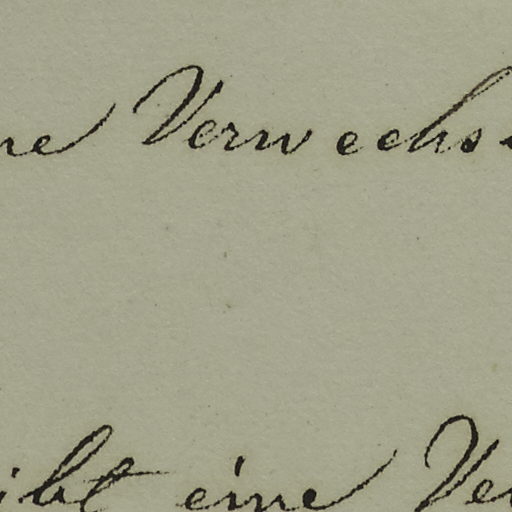 ne Verwechs
ibt eine Ve